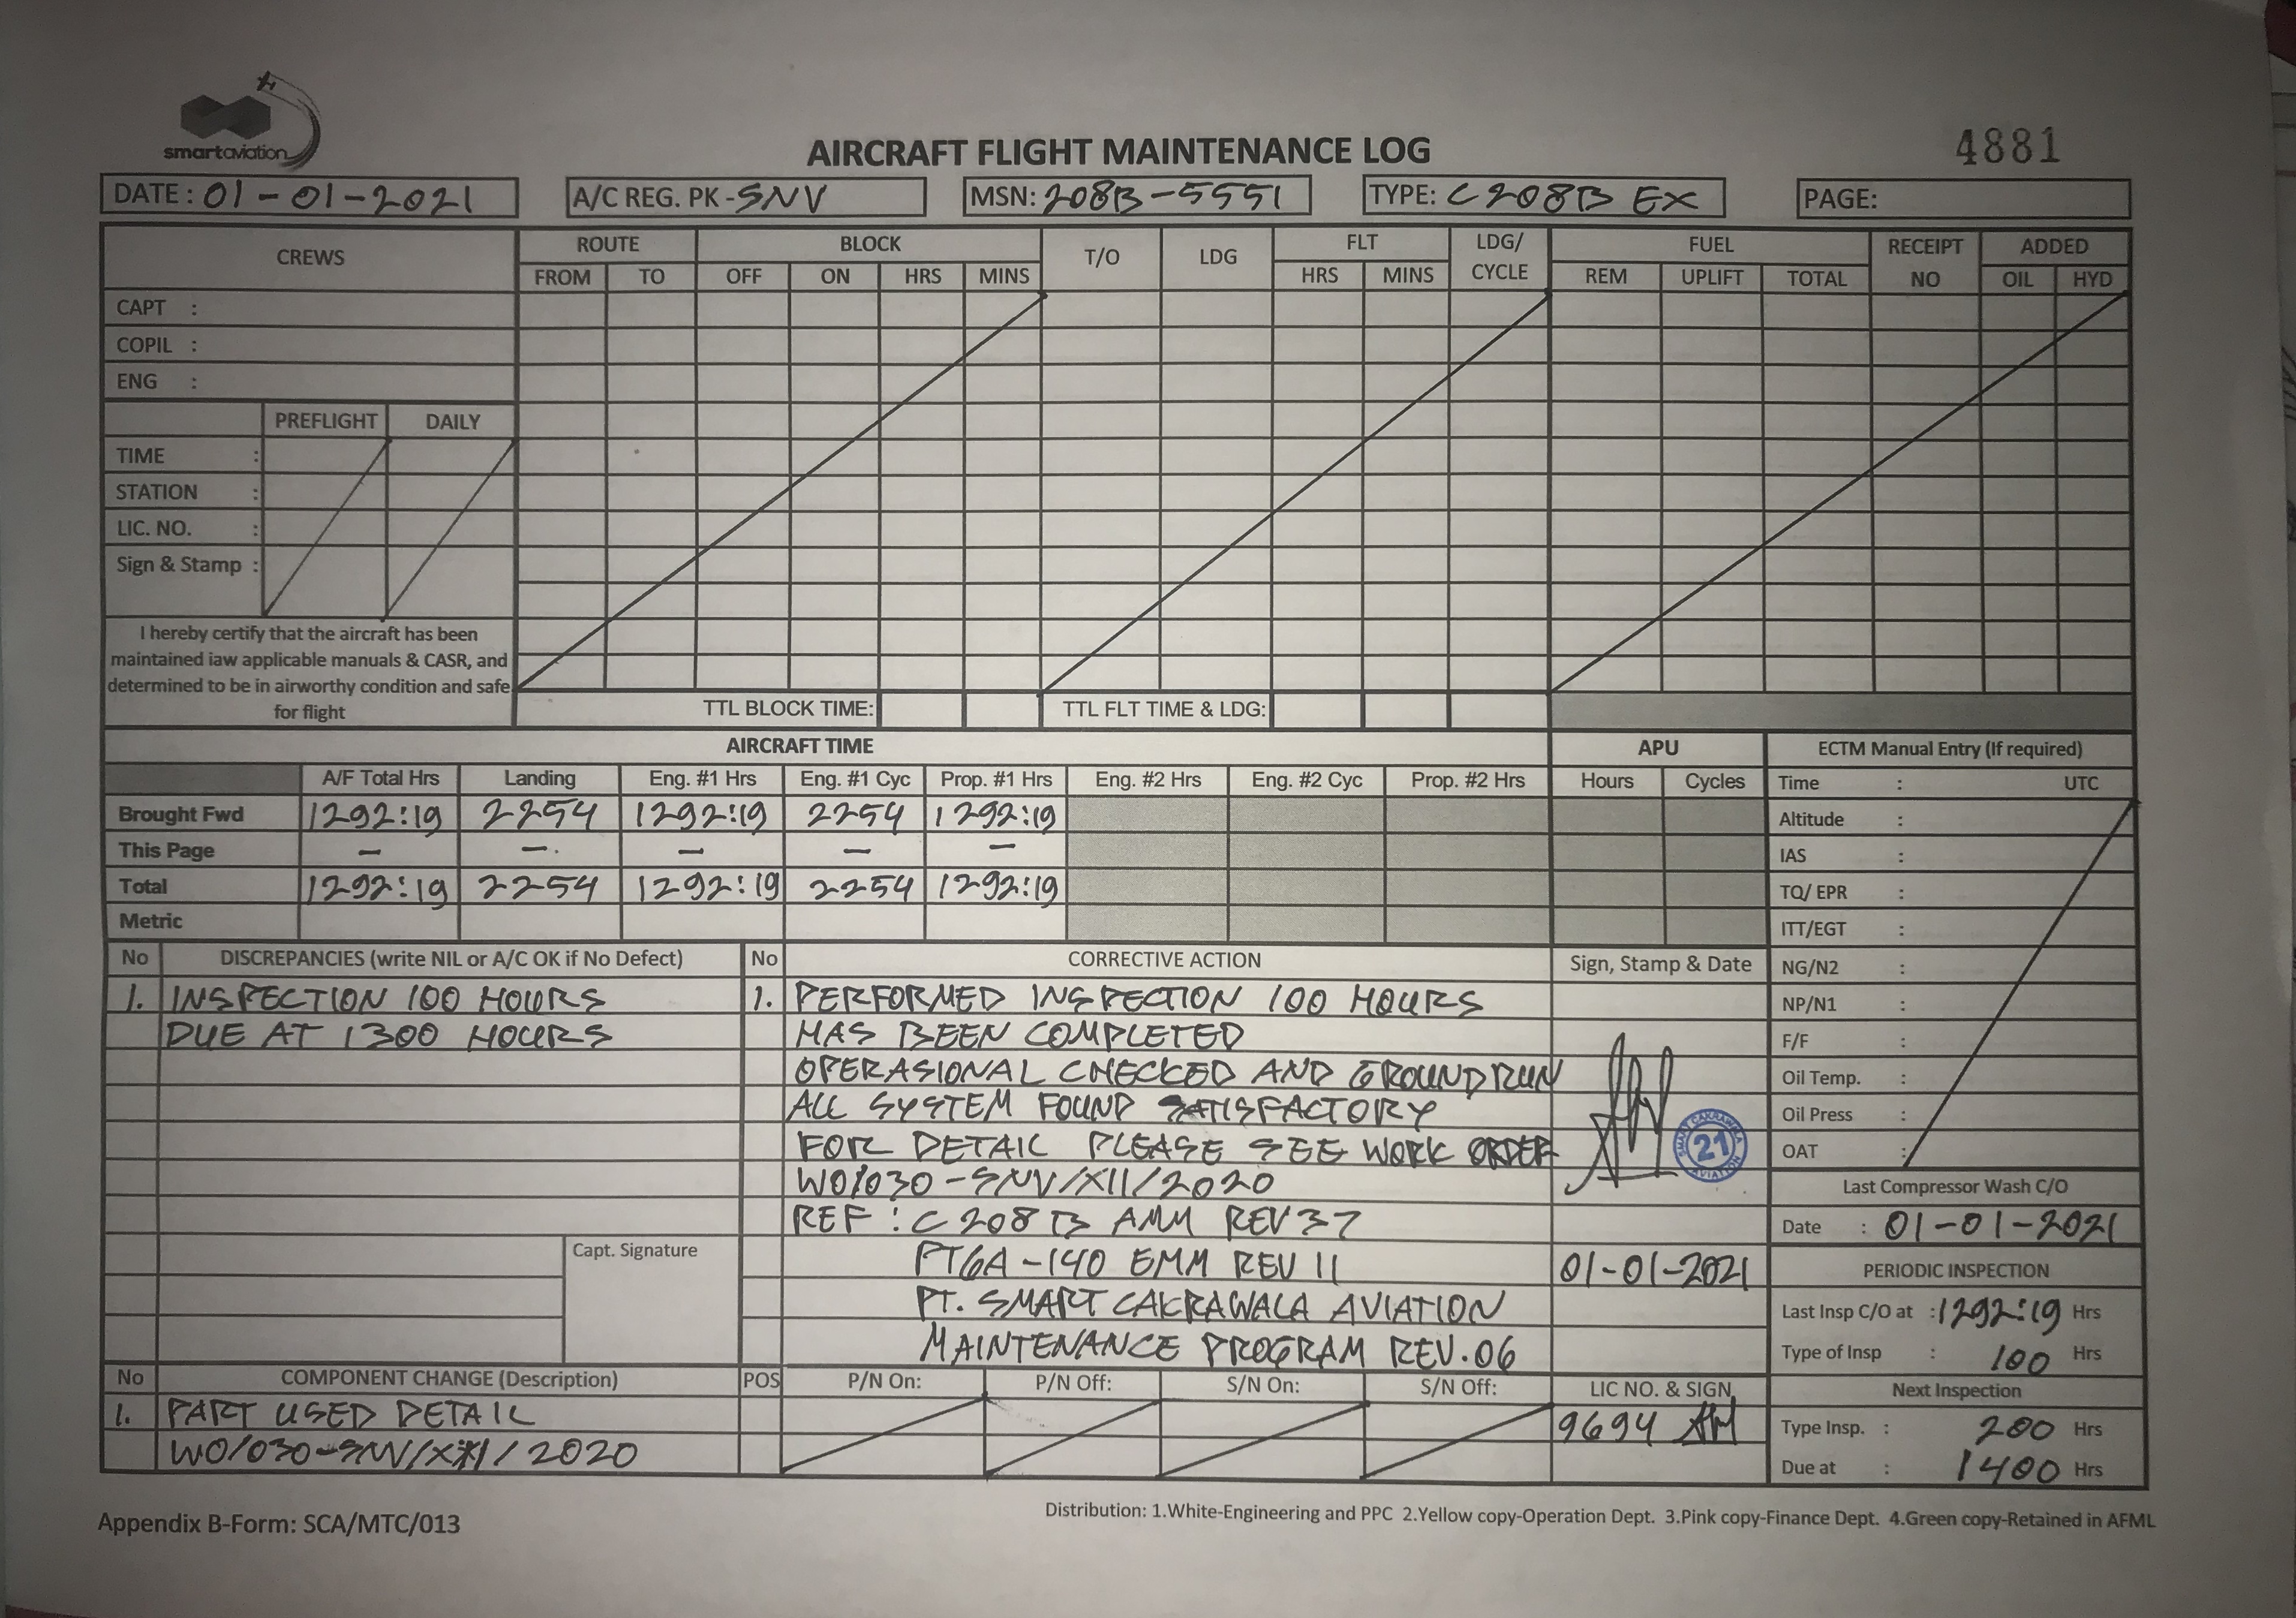 smartaviation
AIRCRAFT FLIGHT MAINTENANCE LOG
4881
DATE : 01-01-2021
A/C REG. PK - SNV
MSN: 208B-5551
TYPE: C208B EX
PAGE:
CREWS
ROUTE BLOCK T/O LDG FLT LDG/ CYCLE FUEL RECEIPT NO ADDED
FROM TO OFF ON HRS MINS HRS MINS REM UPLIFT TOTAL OIL HYD
CAPT :
COPIL :
ENG :
PREFLIGHT DAILY
TIME :
STATION :
LIC. NO. :
Sign & Stamp :
I hereby certify that the aircraft has been
maintained iaw applicable manuals & CASR, and
determined to be in airworthy condition and safe
for flight
TTL BLOCK TIME: TTL FLT TIME & LDG:
AIRCRAFT TIME APU
A/F Total Hrs Landing Eng. #1 Hrs Eng. #1 Cyc Prop. #1 Hrs Eng. #2 Hrs Eng. #2 Cyc Prop. #2 Hrs Hours Cycles
Brought Fwd 1292:19 2254 1292:19 2254 1292:19
This Page - - - - -
Total 1292:19 2254 1292:19 2254 1292:19
Metric
ECTM Manual Entry (If required)
Time : UTC
Altitude :
IAS :
TQ/ EPR :
ITT/EGT :
NG/N2 :
NP/N1 :
F/F :
Oil Temp. :
Oil Press :
OAT :
No DISCREPANCIES (write NIL or A/C OK if No Defect)
1. INSPECTION 100 HOURS
DUE AT 1300 HOURS
Capt. Signature
No CORRECTIVE ACTION Sign, Stamp & Date
1. PERFORMED INSPECTION 100 HOURS
HAS BEEN COMPLETED
OPERASIONAL CHECKED AND GROUND RUN
ALL SYSTEM FOUND SATISFACTORY
FOR DETAIL PLEASE SEE WORK ORDER
WO/030-SNV/XII/2020
REF : C 208 B AMM REV 37
PT6A-140 EMM REV 11
PT. SMART CAKRAWALA AVIATION
MAINTENANCE PROGRAM REV.06
SMART CAKRAWALA
21
AVIATION
01-01-2021
Last Compressor Wash C/O
Date : 01-01-2021
PERIODIC INSPECTION
Last Insp C/O at : 1292:19 Hrs
Type of Insp : 100 Hrs
Next Inspection
Type Insp. : 200 Hrs
Due at : 1400 Hrs
No COMPONENT CHANGE (Description) POS P/N On: P/N Off: S/N On: S/N Off: LIC NO. & SIGN
1. PART USED DETAIL 9694
WO/030-SNV/XII/2020
Appendix B-Form: SCA/MTC/013
Distribution: 1.White-Engineering and PPC 2.Yellow copy-Operation Dept. 3.Pink copy-Finance Dept. 4.Green copy-Retained in AFML